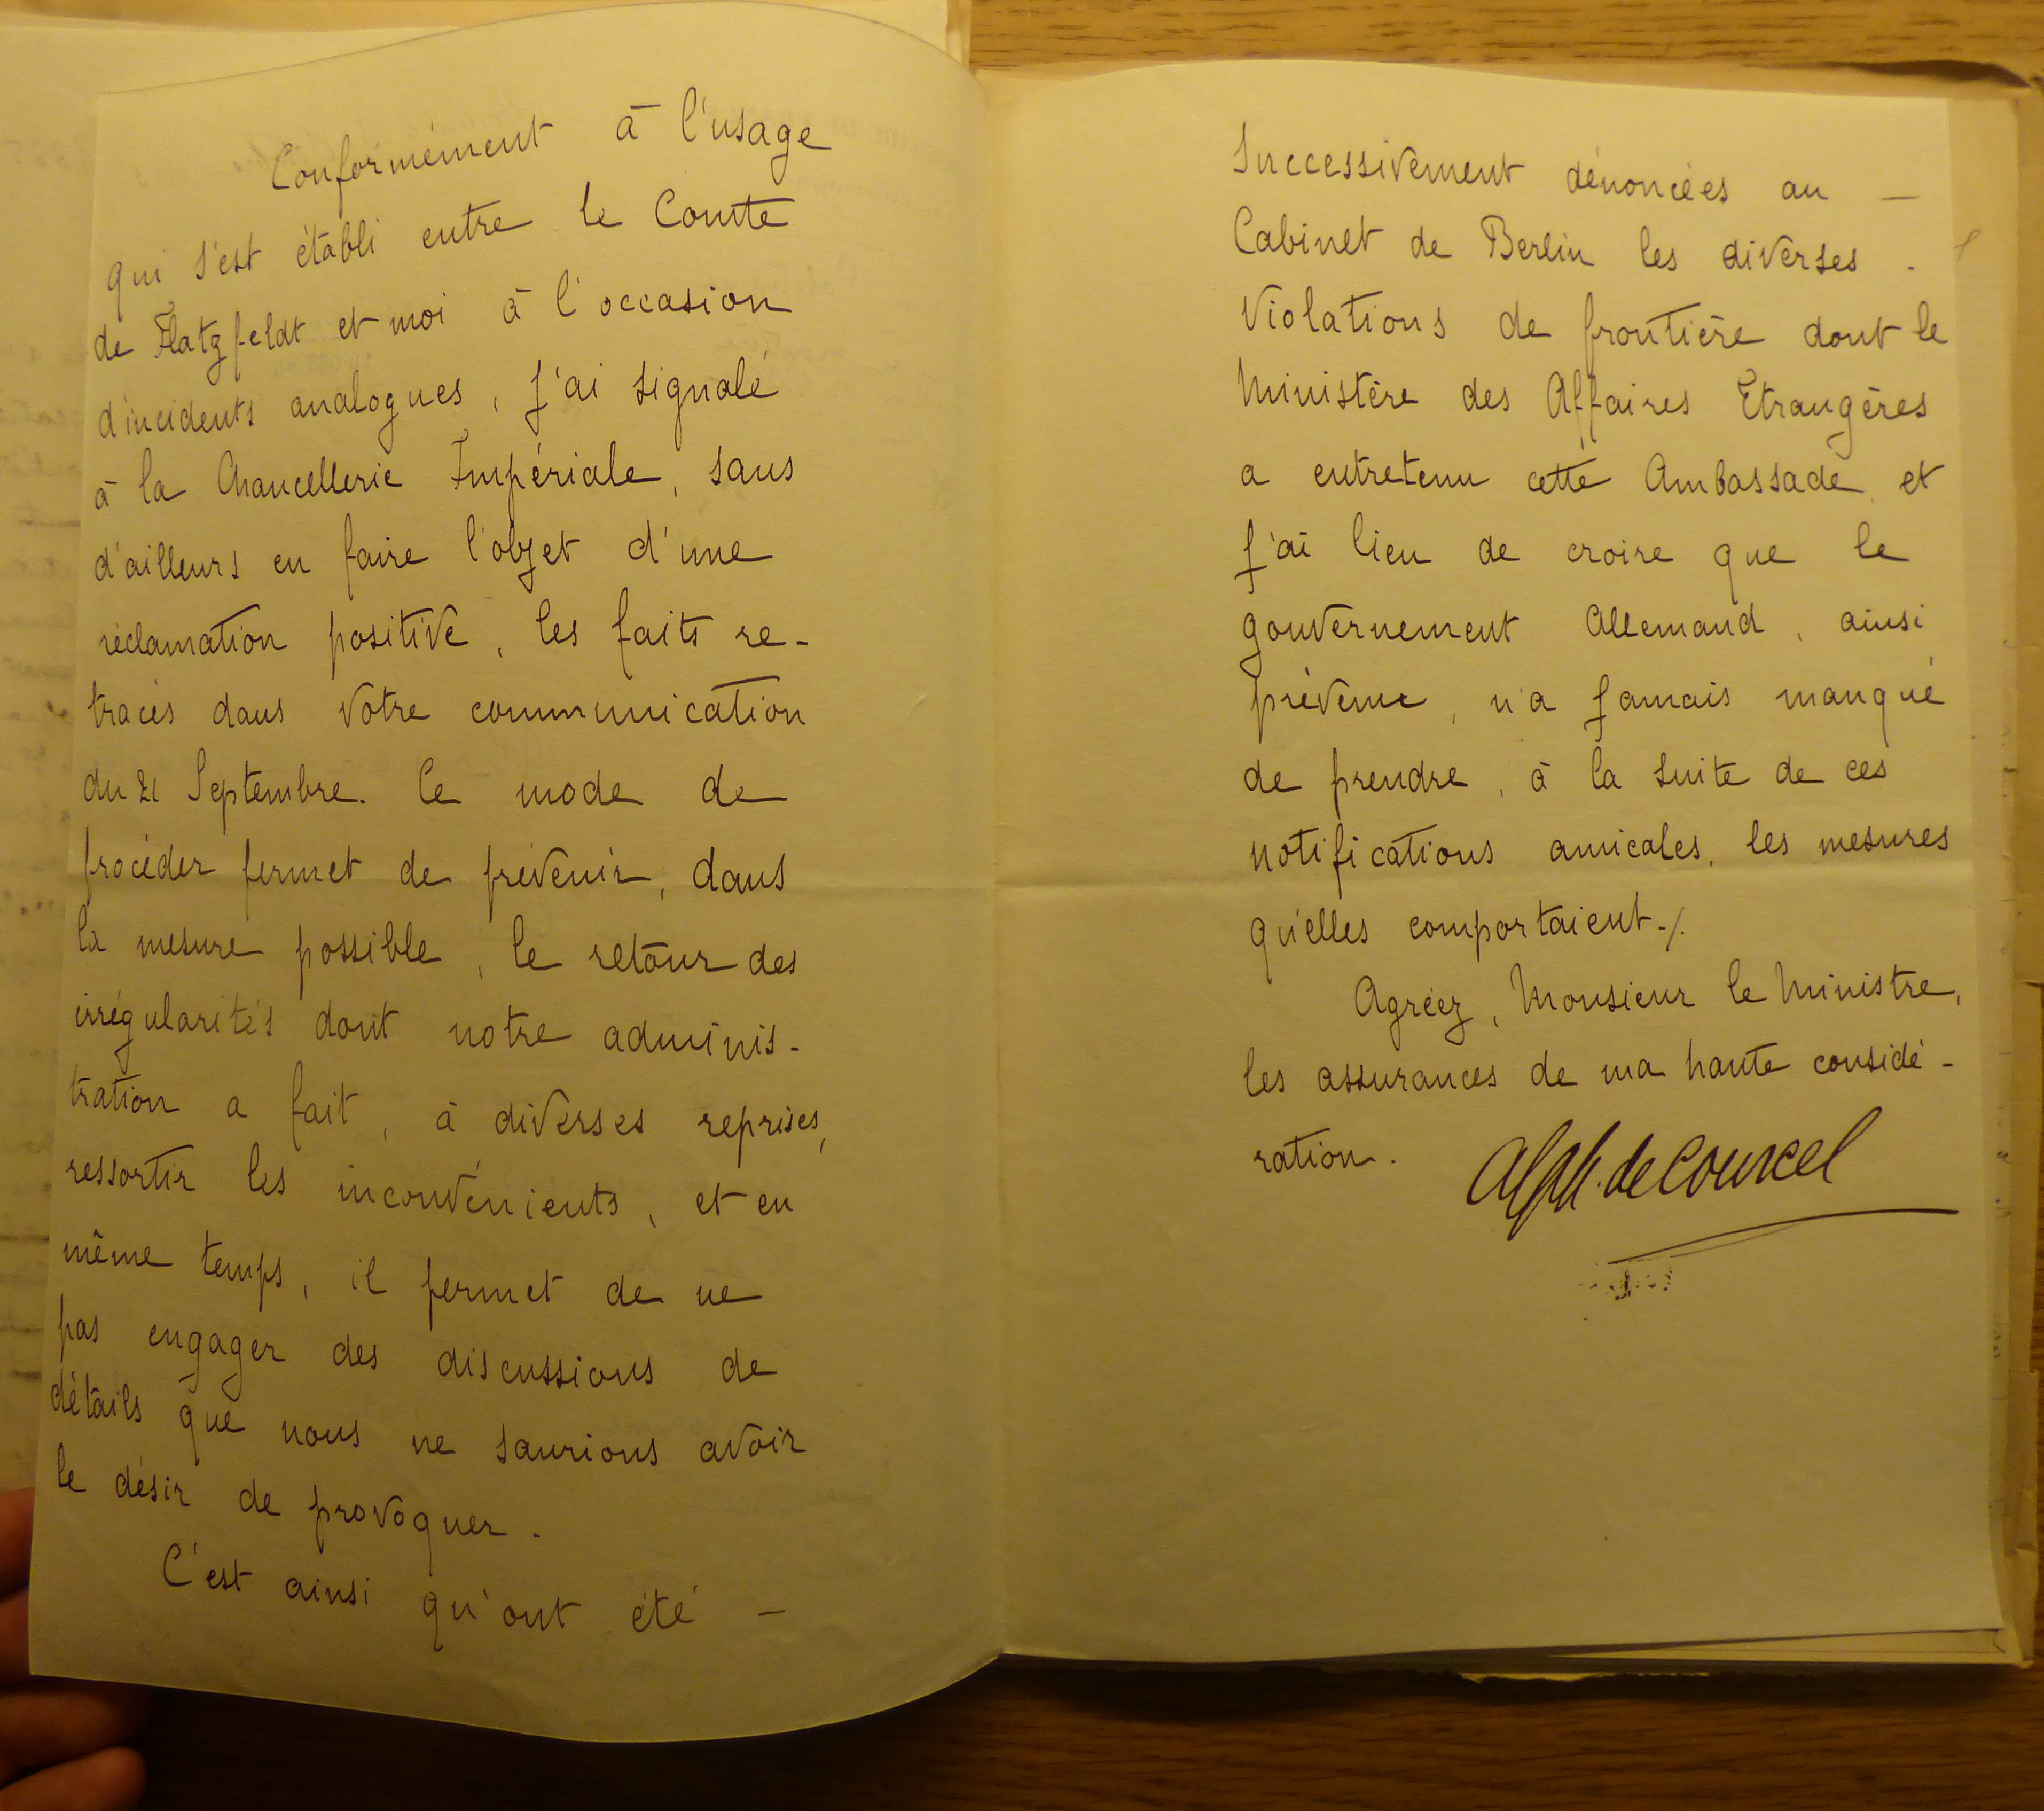 Conformément à l'usage
qui s'est établi entre le Comte
de Hatzfeldt et moi à l'occasion
d'incidents analogues, j'ai signalé
à la Chancellerie Impériale, sans
d'ailleurs en faire l'objet d'une
réclamation positive, les faits re-
tracés dans votre communication
du 21 Septembre. Ce mode de
procéder permet de prévenir, dans
la mesure possible, le retour des
irrégularités dont notre adminis-
tration a fait, à diverses reprises,
ressortir les inconvénients, et en
même temps, il permet de ne
pas engager des discussions de
détails que nous ne saurions avoir
le désir de provoquer.
C'est ainsi qu'ont été -
Successivement dénoncées au -
Cabinet de Berlin les diverses.
Violations de frontière dont le
Ministère des Affaires Etrangères
a entretenu cette Ambassade, et
j'ai lieu de croire que le
gouvernement Allemand, ainsi
prévenu, n'a jamais manqué
de prendre, à la suite de ces
notifications amicales, les mesures
qu'elles comportaient./.
Agréez, Monsieur le Ministre,
les assurances de ma haute considé-
ration.
Alph. de Courcel